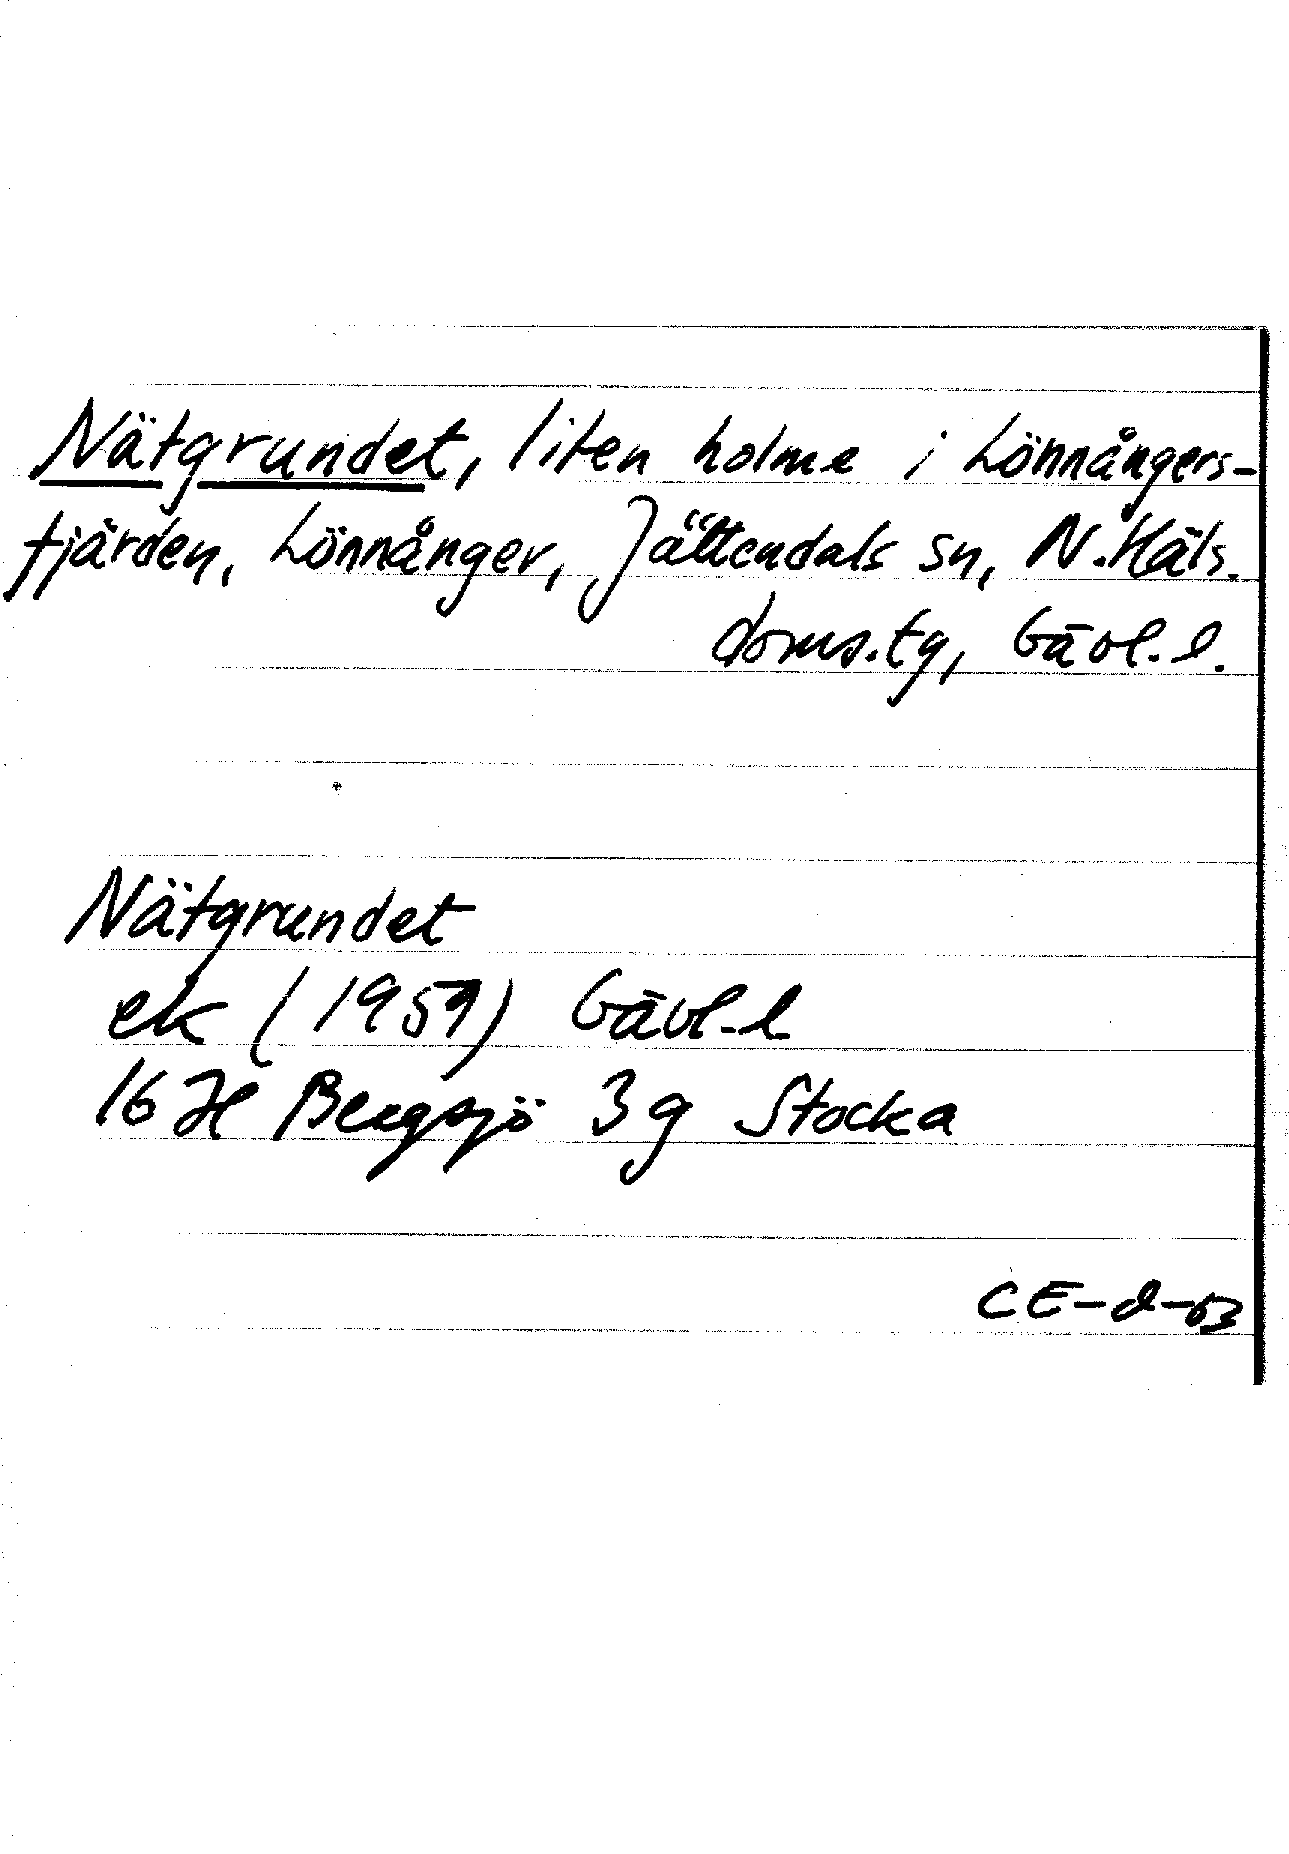 Nätgrundet, liten holme i Lönnångers-
fjärden, Lönnånger, Jättendals sn, N. Häls.
doms.tg, Gävl. l.
Nätgrundet
ek (1959) Gävl. l
16 H Bergsjö 3 g Stocka
CE-d-63